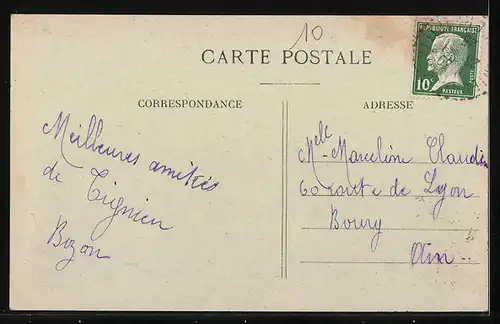 10
CARTE POSTALE
REPUBLIQUE FRANÇAISE
POSTES
10c
PASTEUR
CORRESPONDANCE
ADRESSE
Meilleures amitiés
de Tignieu
Bozon
Melle Marceline Claudin
60 route de Lyon
Bourg
Ain